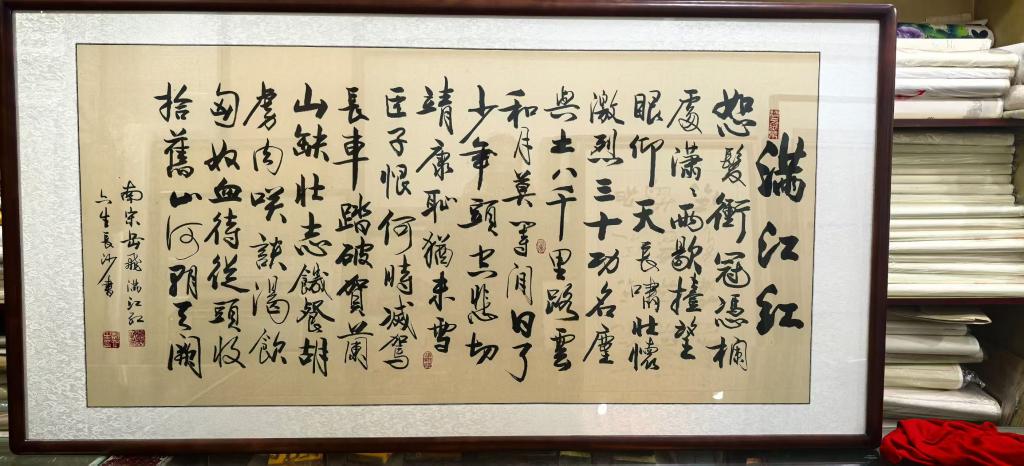 滿江紅
怒髮衝冠憑欄
處瀟、雨歇擡望
眼仰天長嘯壯懷
激烈三十功名塵
與土八千里路雲
和月莫等閒白了
少年頭空悲切
靖康恥猶未雪
臣子恨何時滅駕
長車踏破賀蘭
山缺壯志饑餐胡
虜肉笑談渴飲
匈奴血待從頭收
拾舊山河朝天闕
南宋岳飛滿江紅
生長沙書